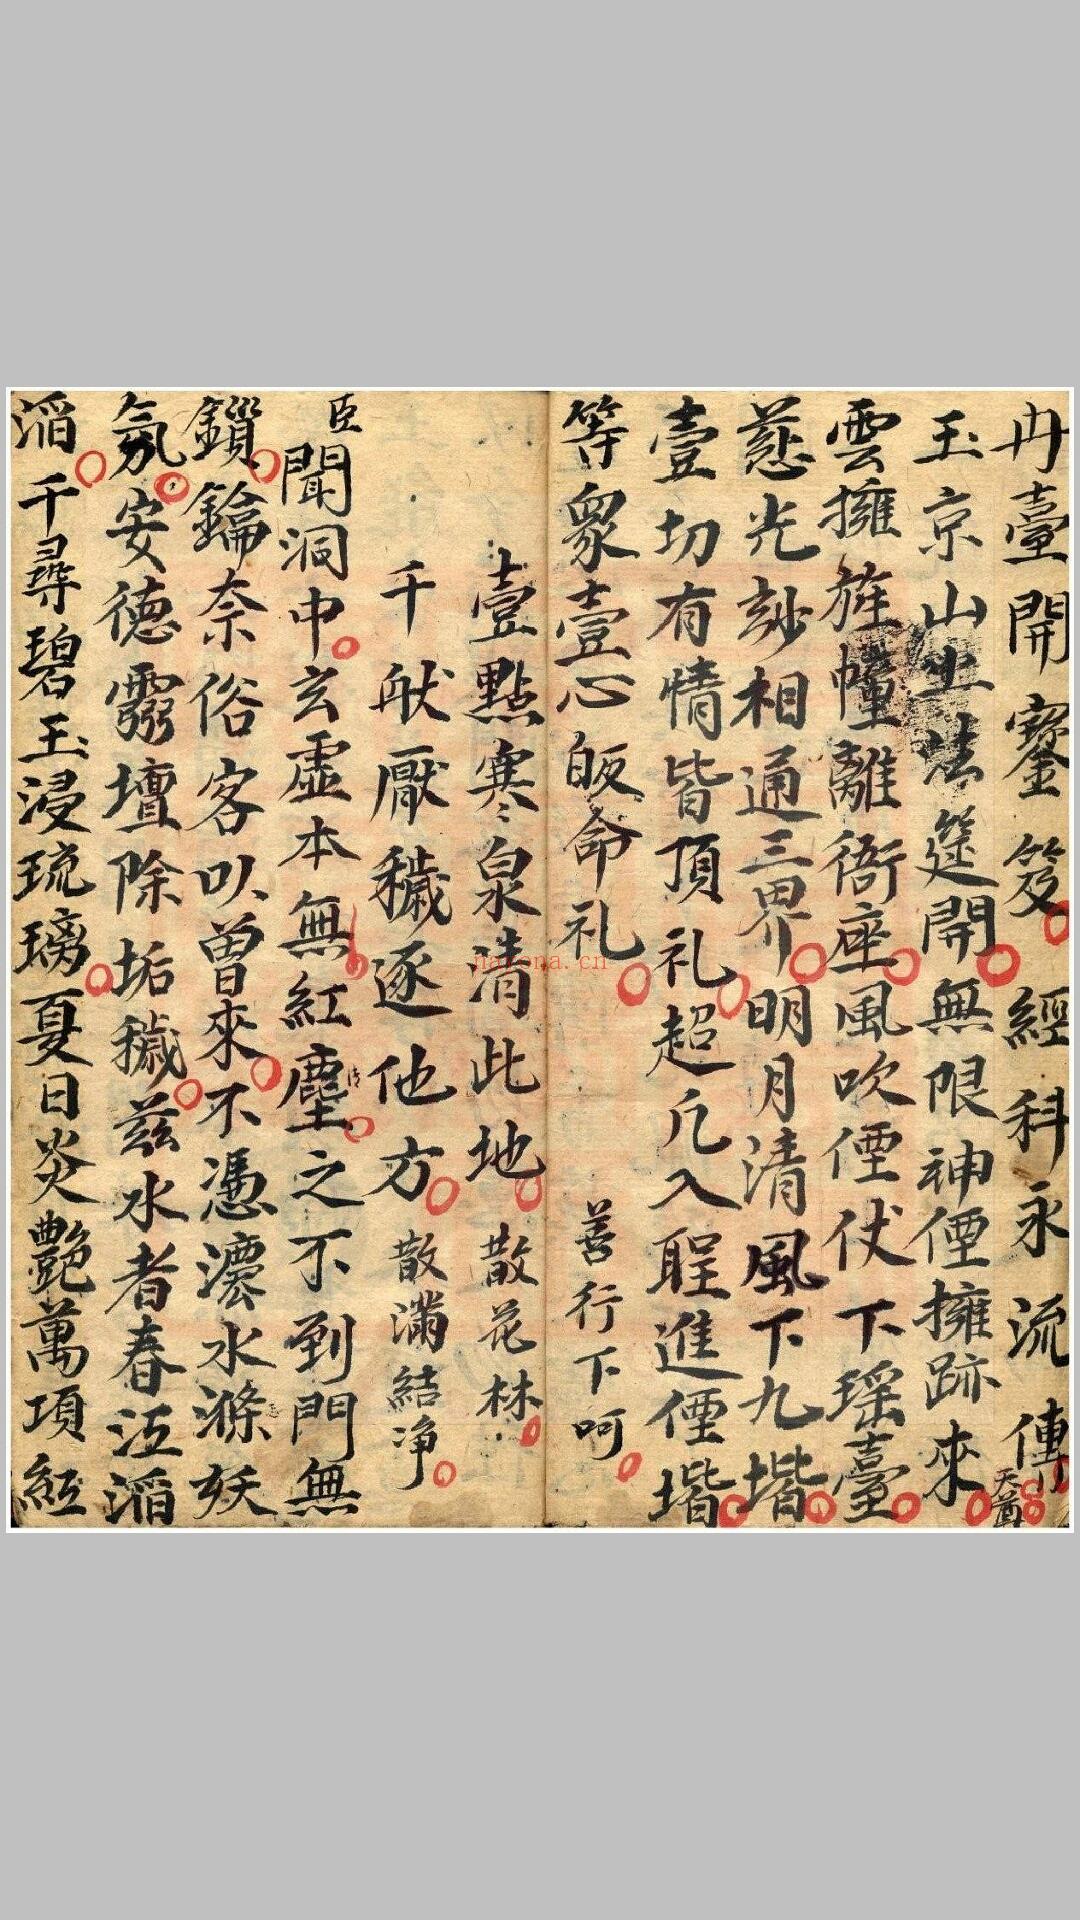 臺開寳笈經科永流傳
天尊
玉京山上法筵開無限神僊擁跡來
雲擁旌幢離衙座風吹僊仗下瑶臺
慈光玅相通三界明月清風下九堦
壹切有情皆頂礼超凢入聖進僊堦
等衆壹心皈命礼 善行下呵
壹點寒泉清此地 散花林
千厭穢逐他方 散滿結净
臣聞洞中玄虚本無紅塵之不到門無
鎖鑰奈俗客以曾來不憑濃水滌妖
氛安德壇除垢穢兹水者春江滔
滔千尋碧玉浸琉璃夏日炎艷萬項紅
hafona.cn